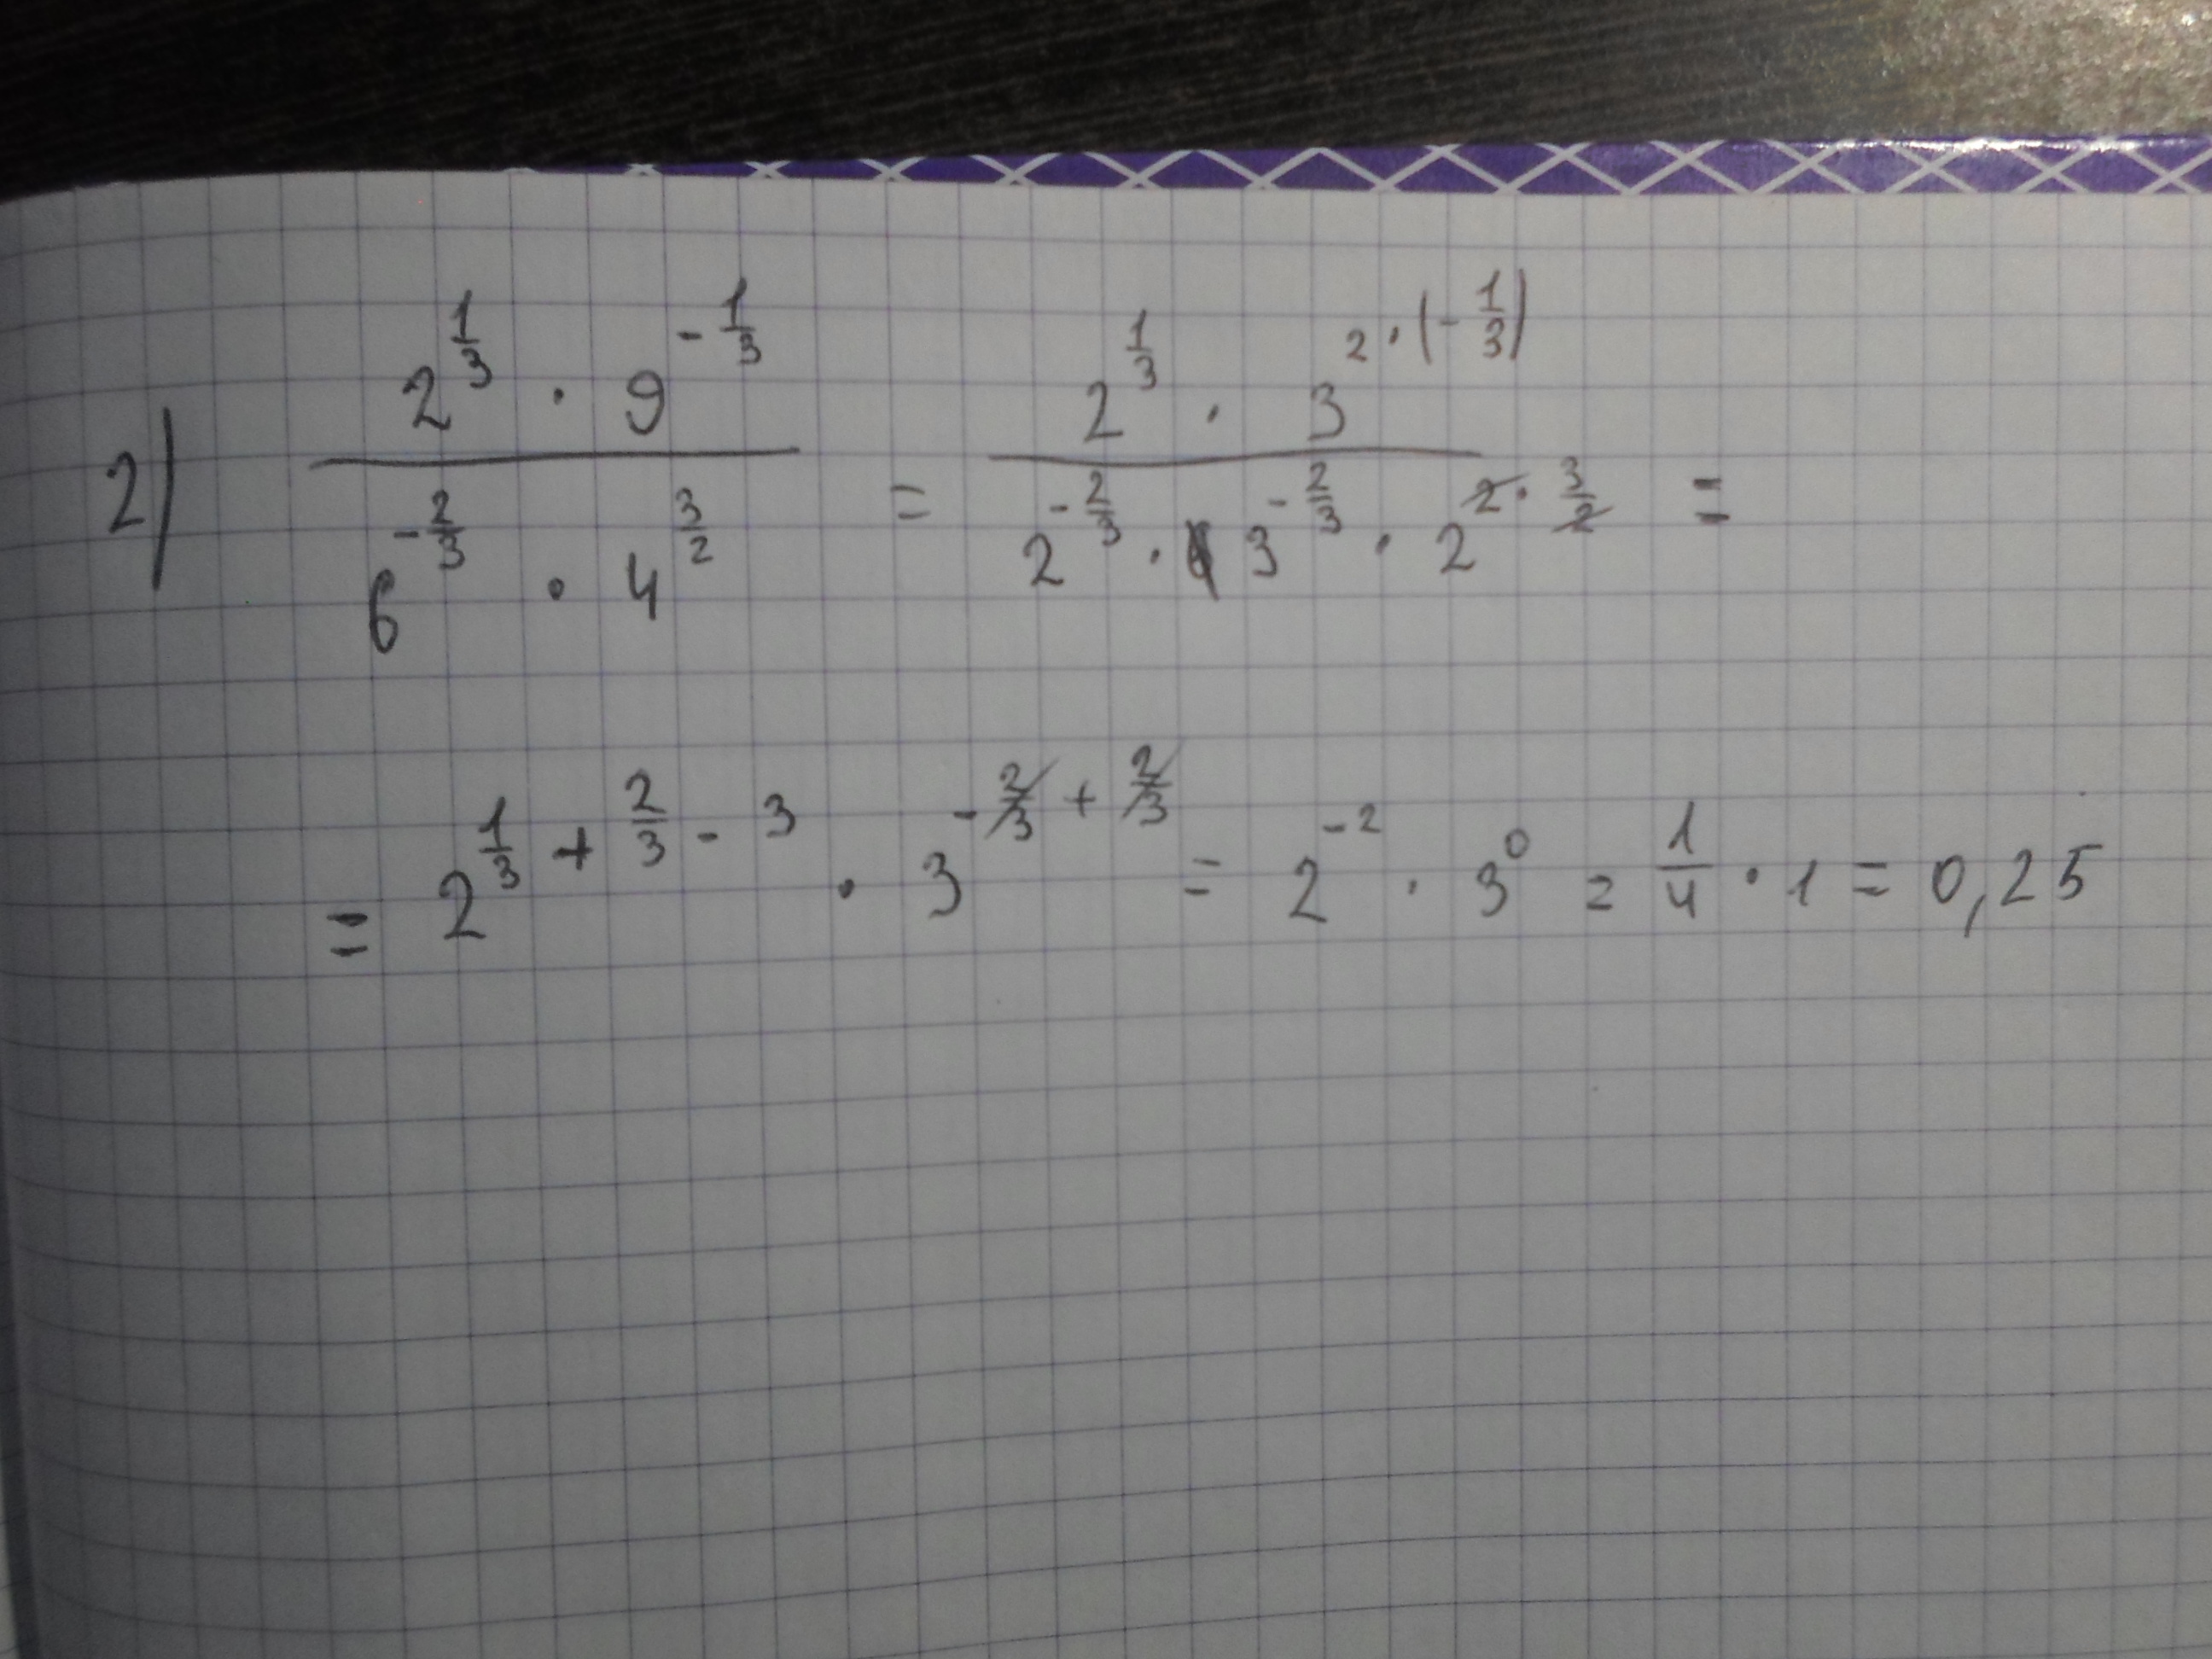 2) (2^(1/3) · 9^(-1/3)) / (6^(-2/3) · 4^(3/2)) = (2^(1/3) · 3^(2·(-1/3))) / (2^(-2/3) · 3^(-2/3) · 2^(2·3/2)) =
= 2^(1/3 + 2/3 - 3) · 3^(-2/3 + 2/3) = 2^(-2) · 3^0 = 1/4 · 1 = 0,25